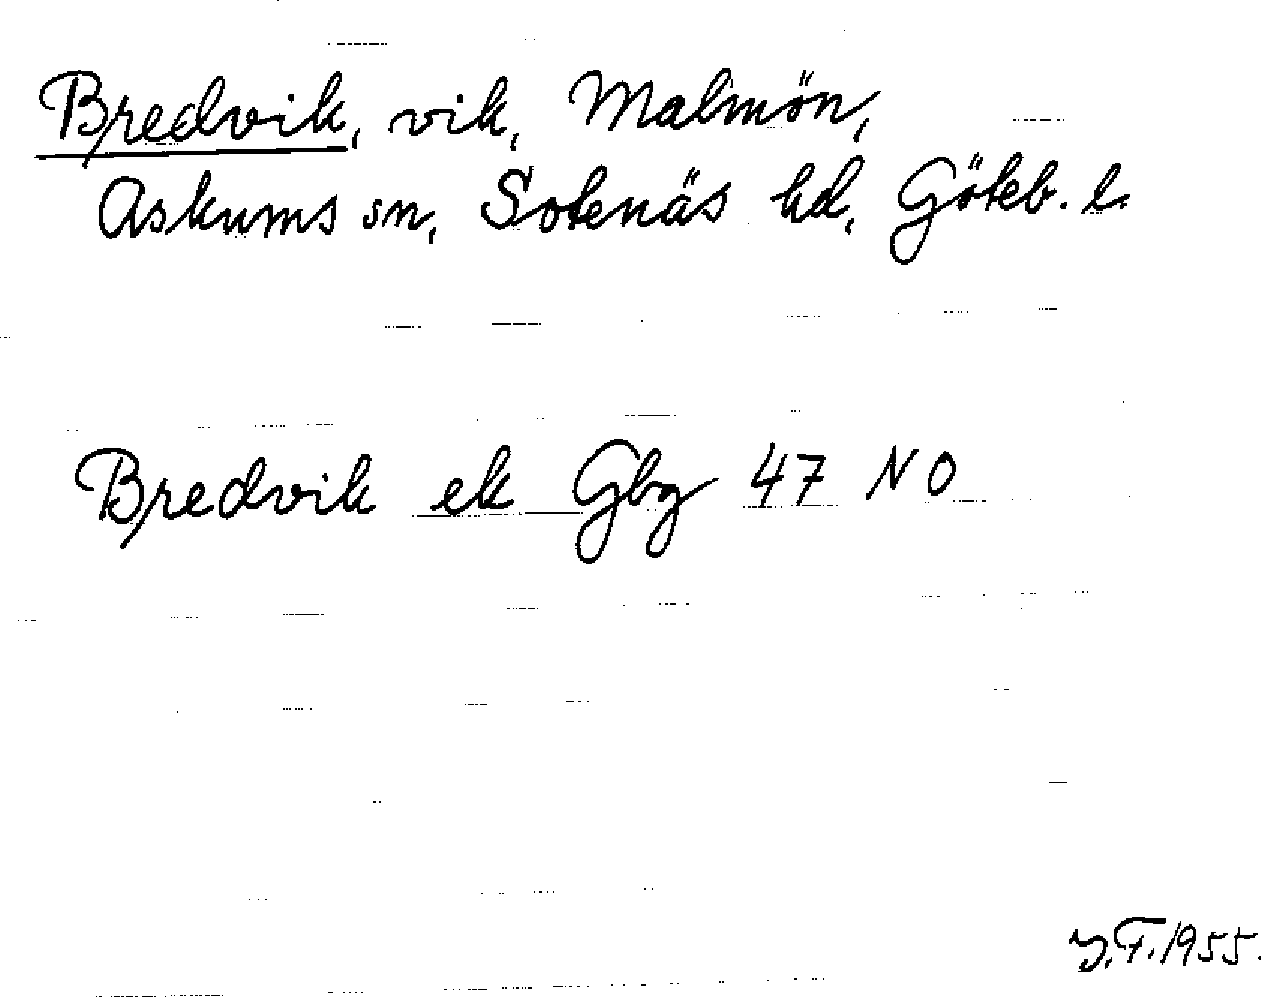 Bredvik, vik, Malmön,
Askums sn, Sotenäs hd, Göteb. l.
Bredvik ek Gbg 47 NO
Y.F. 1955.